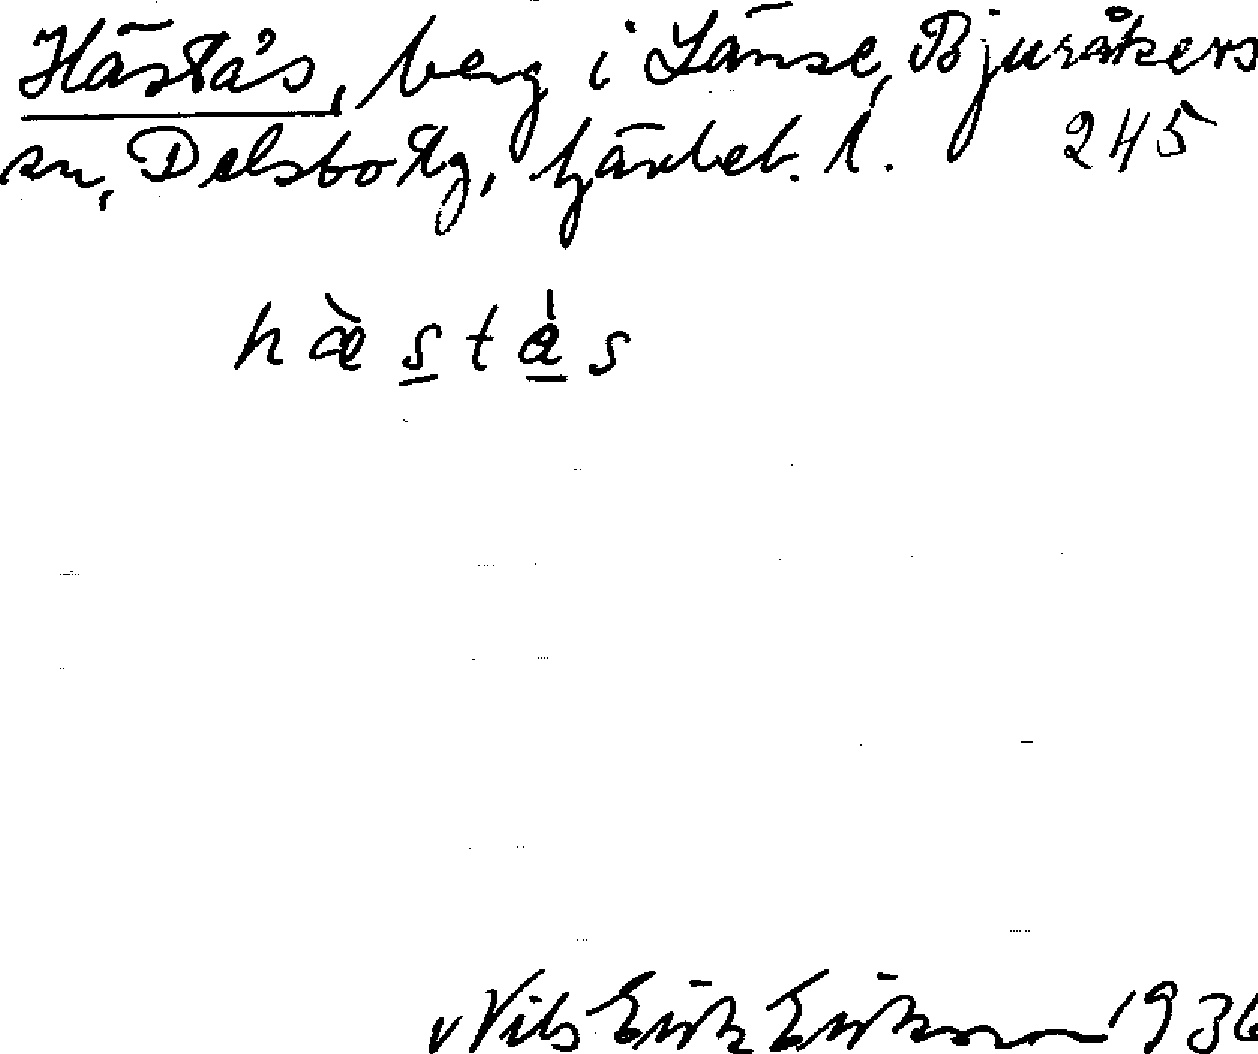 Hästås, berg i Länse, Bjuråkers
sn, Delsbo tg, fjärdet. 1. 245
hæ̀stås
Nils Erik Erikson 1936